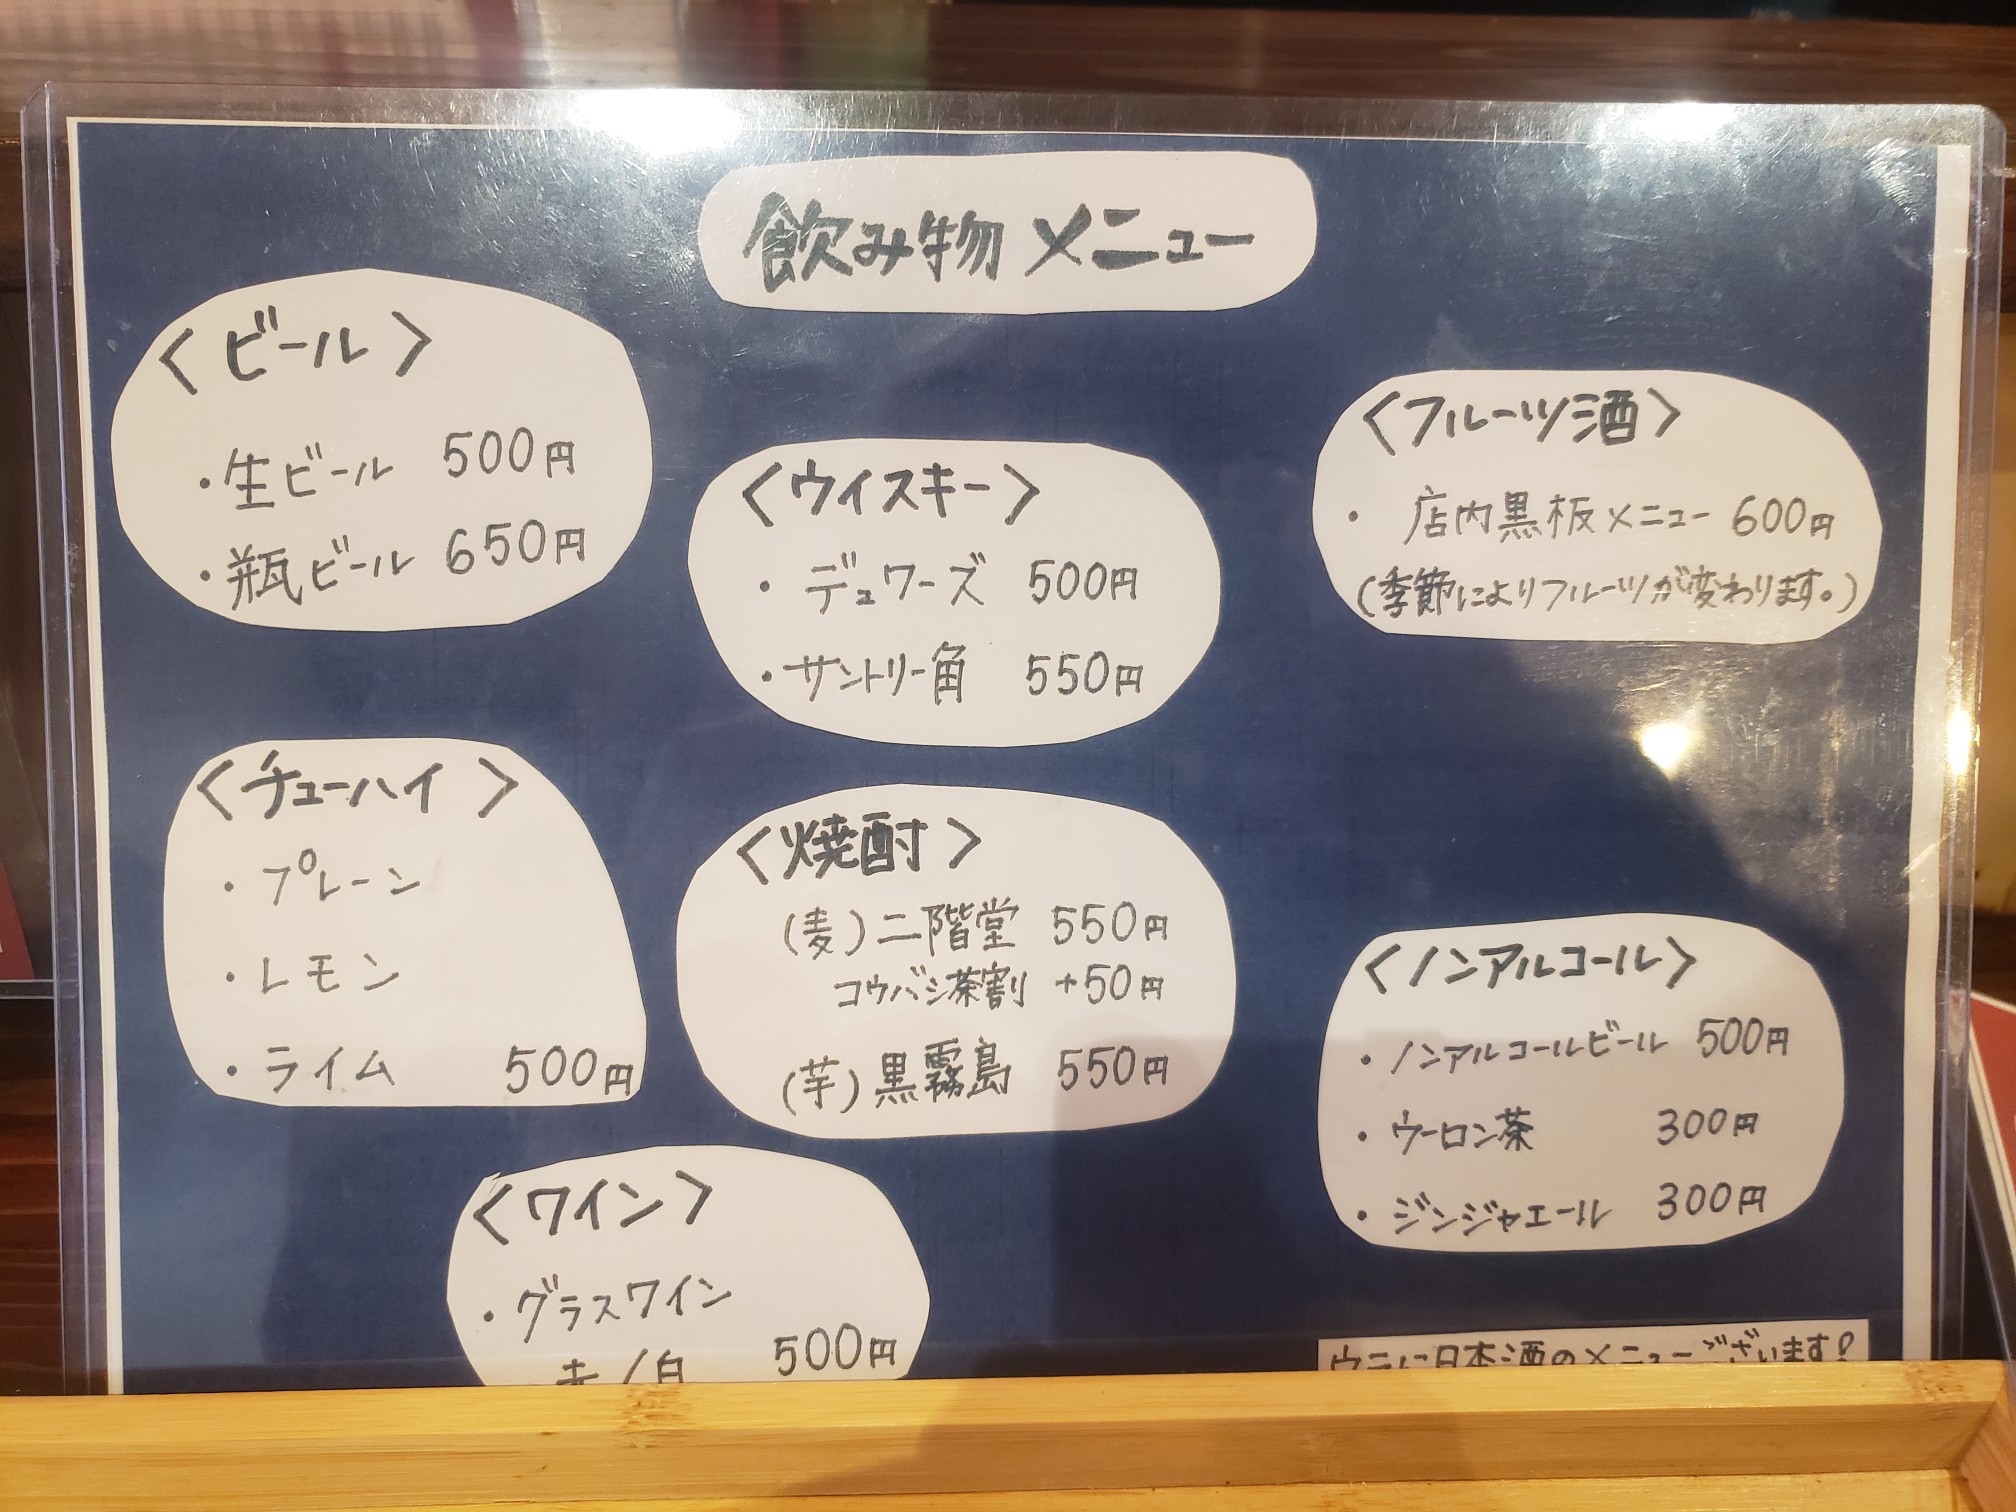 飲み物メニュー
〈ビール〉
・生ビール 500円
・瓶ビール 650円
〈ウイスキー〉
・デュワーズ 500円
・サントリー角 550円
〈フルーツ酒〉
・店内黒板メニュー 600円
(季節によりフルーツが変わります。)
〈チューハイ〉
・プレーン
・レモン
・ライム 500円
〈焼酎〉
(麦)二階堂 550円
コウバシ茶割 +50円
(芋)黒霧島 550円
〈ノンアルコール〉
・ノンアルコールビール 500円
・ウーロン茶 300円
・ジンジャエール 300円
〈ワイン〉
・グラスワイン
赤/白 500円
ウラに日本酒のメニューございます!